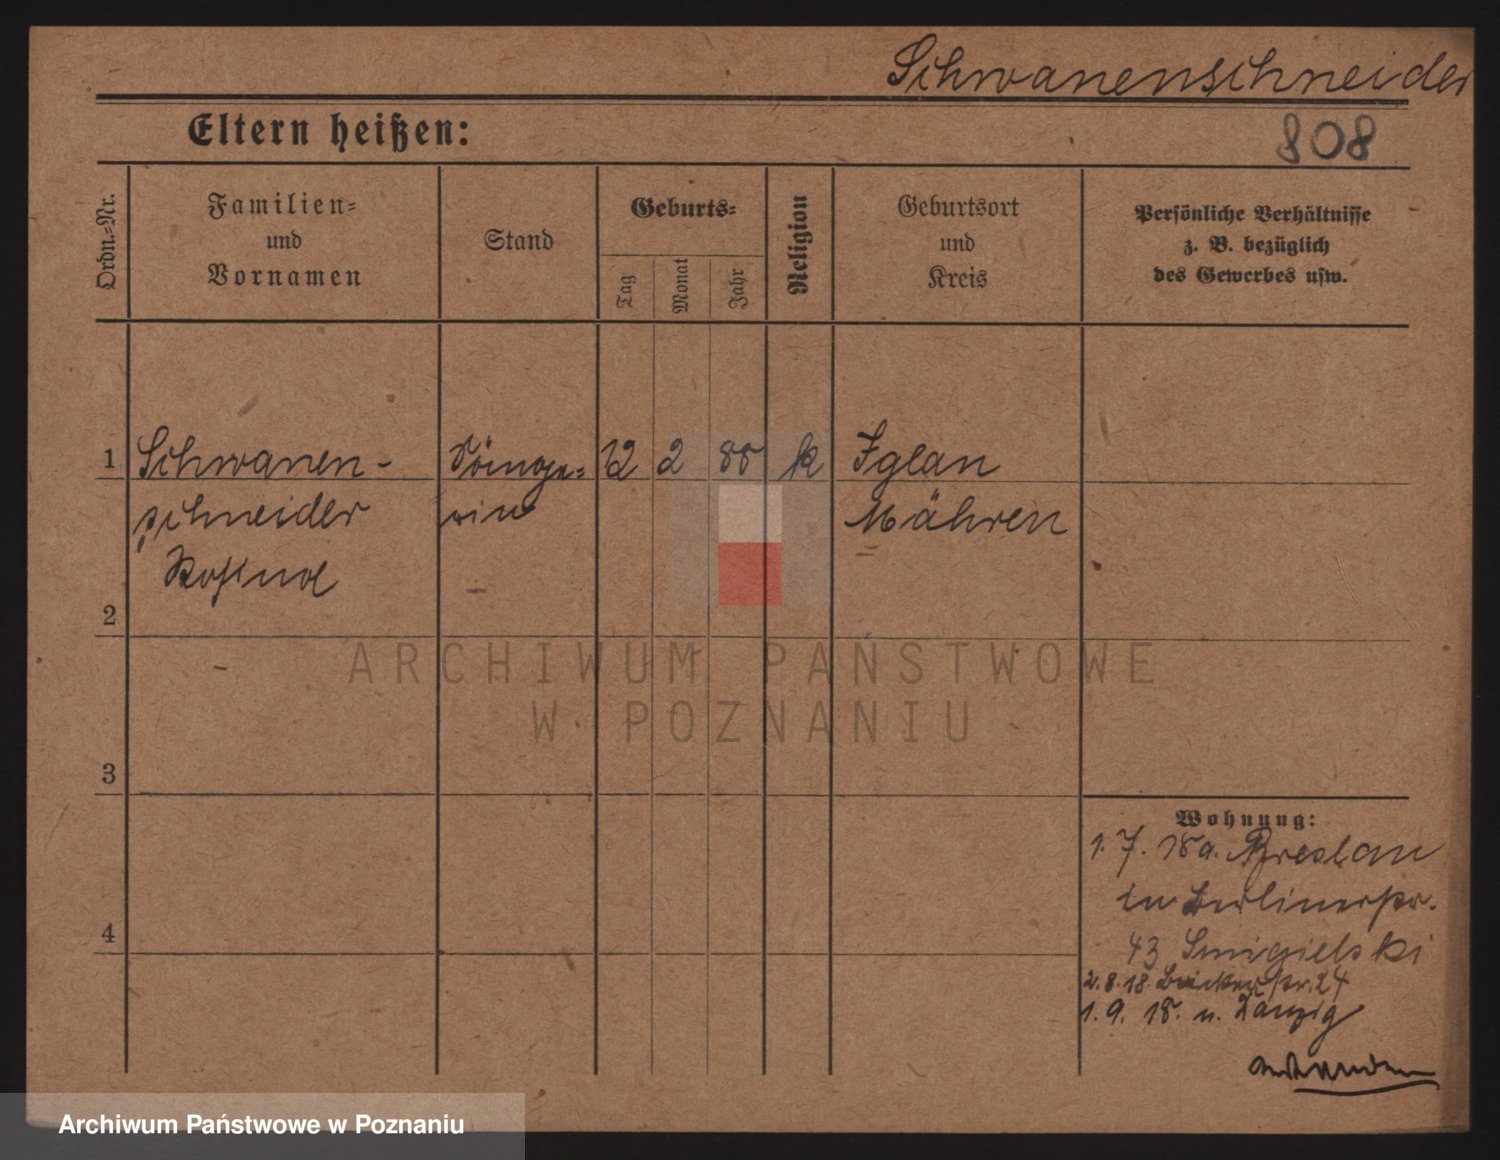 Schwanenschneider
Eltern heißen:
808
Ordn.-Nr.
Familien-
und
Vornamen
Stand
Geburts-
Tag
Monat
Jahr
Religion
Geburtsort
und
Kreis
Persönliche Verhältnisse
z. B. bezüglich
des Gewerbes usw.
1 Schwanen- Sänge- 12 2 88 k Iglau
schneider rin Mähren
Rosina
2
ARCHIWUM PAŃSTWOWE
W POZNANIU
3
4
Wohnung:
1. 7. 18 a. Breslau
in Berlinerstr.
43 Smigielski
2. 8. 18 Bäckerstr. 24
1. 9. 18. n. Danzig
Archiwum Państwowe w Poznaniu